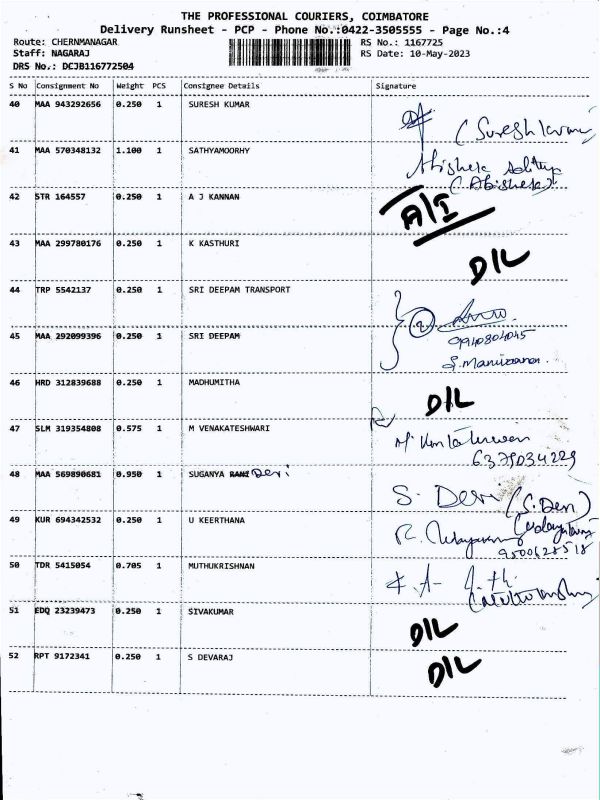 THE PROFESSIONAL COURIERS, COIMBATORE
Delivery Runsheet - PCP - Phone No.:0422-3505555 - Page No.:4
Route: CHERNMANAGAR RS No.: 1167725
Staff: NAGARAJ RS Date: 10-May-2023
DRS No.: DCJB116772504
S No Consignment No Weight PCS Consignee Details Signature
40 MAA 943292656 0.250 1 SURESH KUMAR
41 MAA 570348132 1.100 1 SATHYAMOORHY
(Abishek)
42 STR 164557 0.250 1 A J KANNAN
A/I
43 MAA 299780176 0.250 1 K KASTHURI
D/L
44 TRP 5542137 0.250 1 SRI DEEPAM TRANSPORT
2
45 MAA 292099396 0.250 1 SRI DEEPAM
9940804045
46 HRD 312839688 0.250 1 MADHUMITHA D/L
47 SLM 319354808 0.575 1 M VENAKATESHWARI
6379034229
48 MAA 569890681 0.950 1 SUGANYA RANI Devi
S. Devi (S. Devi)
49 KUR 694342532 0.250 1 U KEERTHANA
9500628518
50 TDR 5415054 0.705 1 MUTHUKRISHNAN
51 EDQ 23239473 0.250 1 SIVAKUMAR D/L
52 RPT 9172341 0.250 1 S DEVARAJ D/L